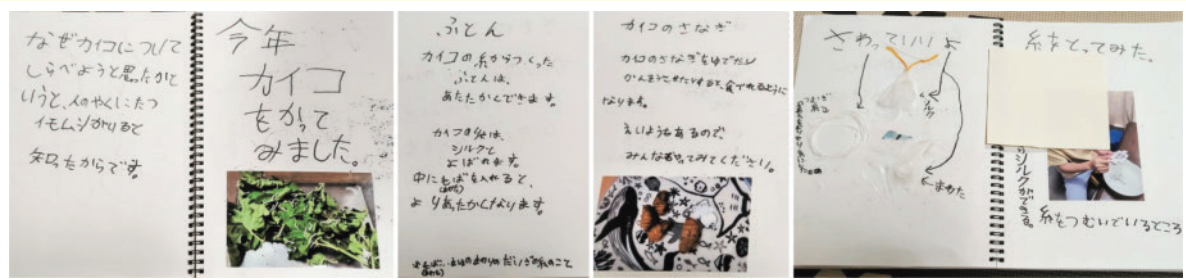 なぜカイコについて
しらべようと思ったかと
いうと、人のやくにたつ
イモムシがいると
知ったからです。
今年
カイコ
をかって
みました。
ふとん
カイコの糸からつくった
ふとんは、
あたたかくできます。
カイコの糸は、
シルクと
よばれます。
中に
を入れると、
よりあたたかくなります。
カイコのさなぎ
カイコのさなぎをゆでたり
かんそうさせたりすると、食べれるように
なります。
えいようもあるので、
みんなも
みてください。
さわっていいよ
シルク
←まわた
糸をとってみた。
シルクができる。
糸をつむいでいるところ